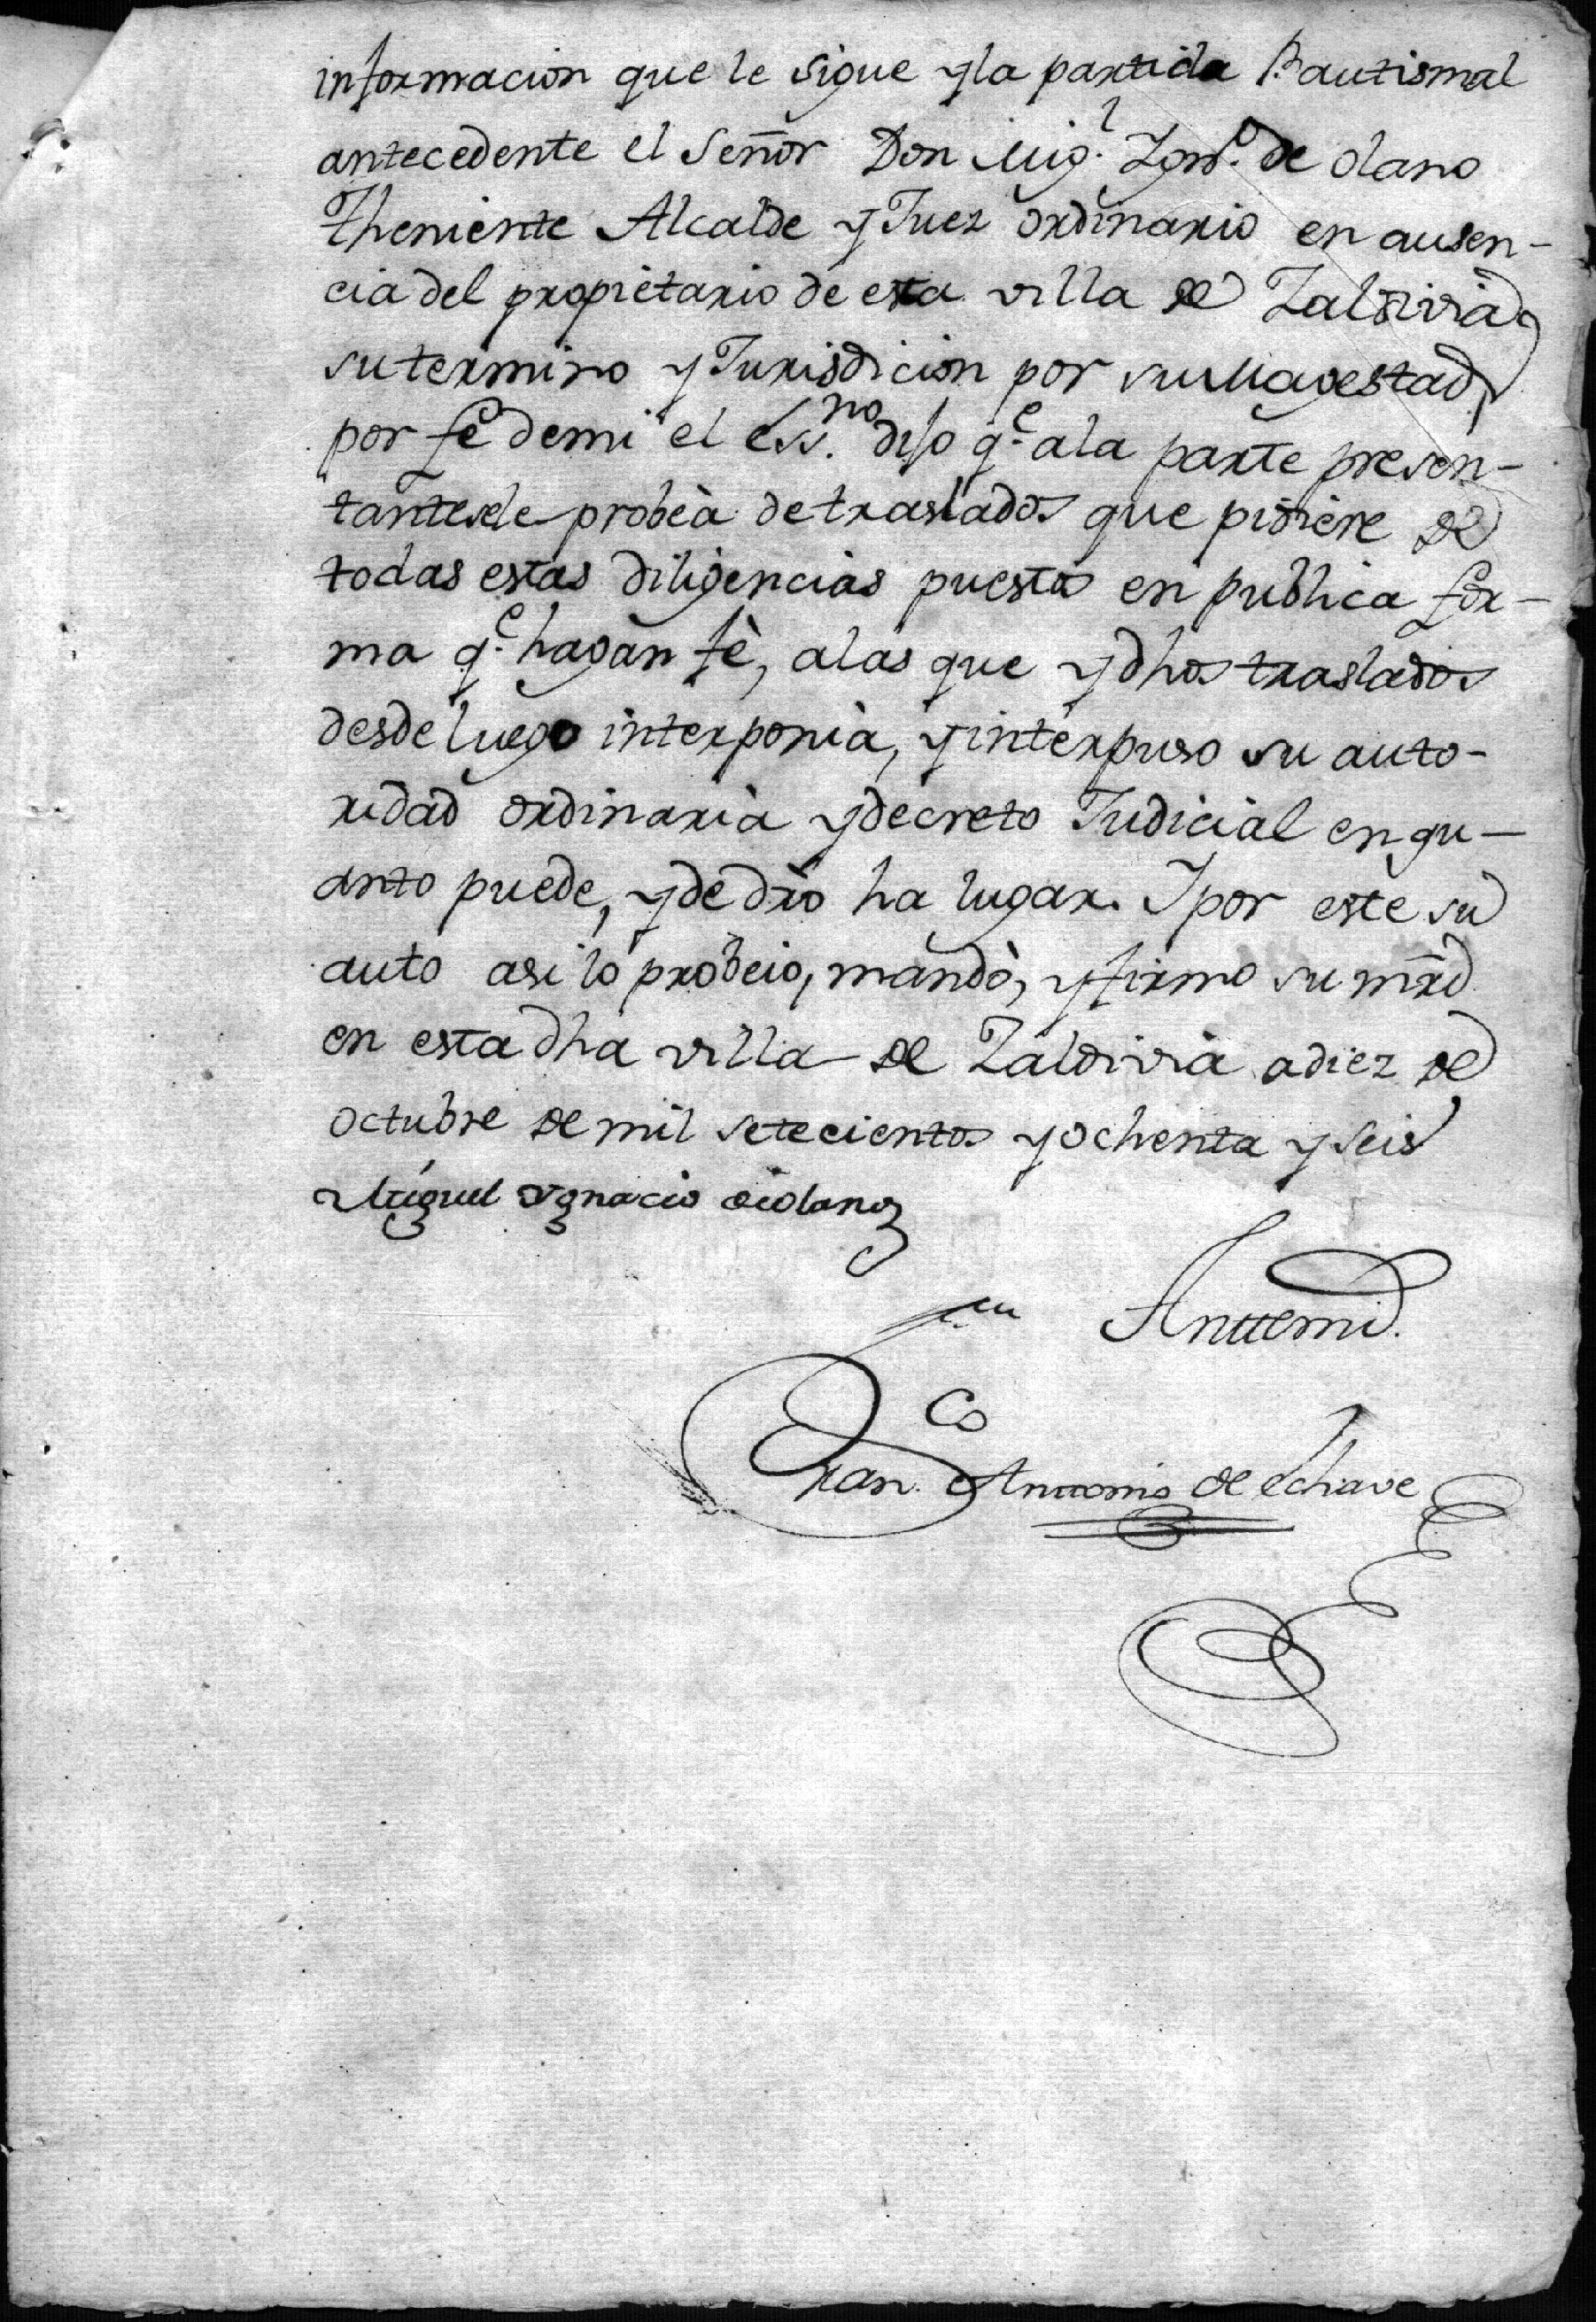 informacion que le sigue y la partida Bautismal
antecedente el Señor Don Mig.l Ygn.o de olano
Theniente Alcalde y Juez ordinario en ausen-
cia del propietario de esta villa de Zaldivia,
su termino y Jurisdicion por su Magestad,
por fe de mi el ess.no dijo q.e a la parte presen-
tante se le probea de traslados que pidiere de
todas estas diligencias puestas en publica for-
ma q.e hagan fè, a las que y dhos traslados
desde luego interponia, y interpuso su auto-
ridad ordinaria y decreto Judicial en qu-
anto puede, y de dro ha lugar. Y por este su
auto asi lo probeio, mandò, y firmo su mrd
en esta dha villa de Zaldivia a diez de
octubre de mil setecientos y ochenta y seis
Miguel Ygnacio de olano
Anttemi.
Fran.co Anttonio de echave